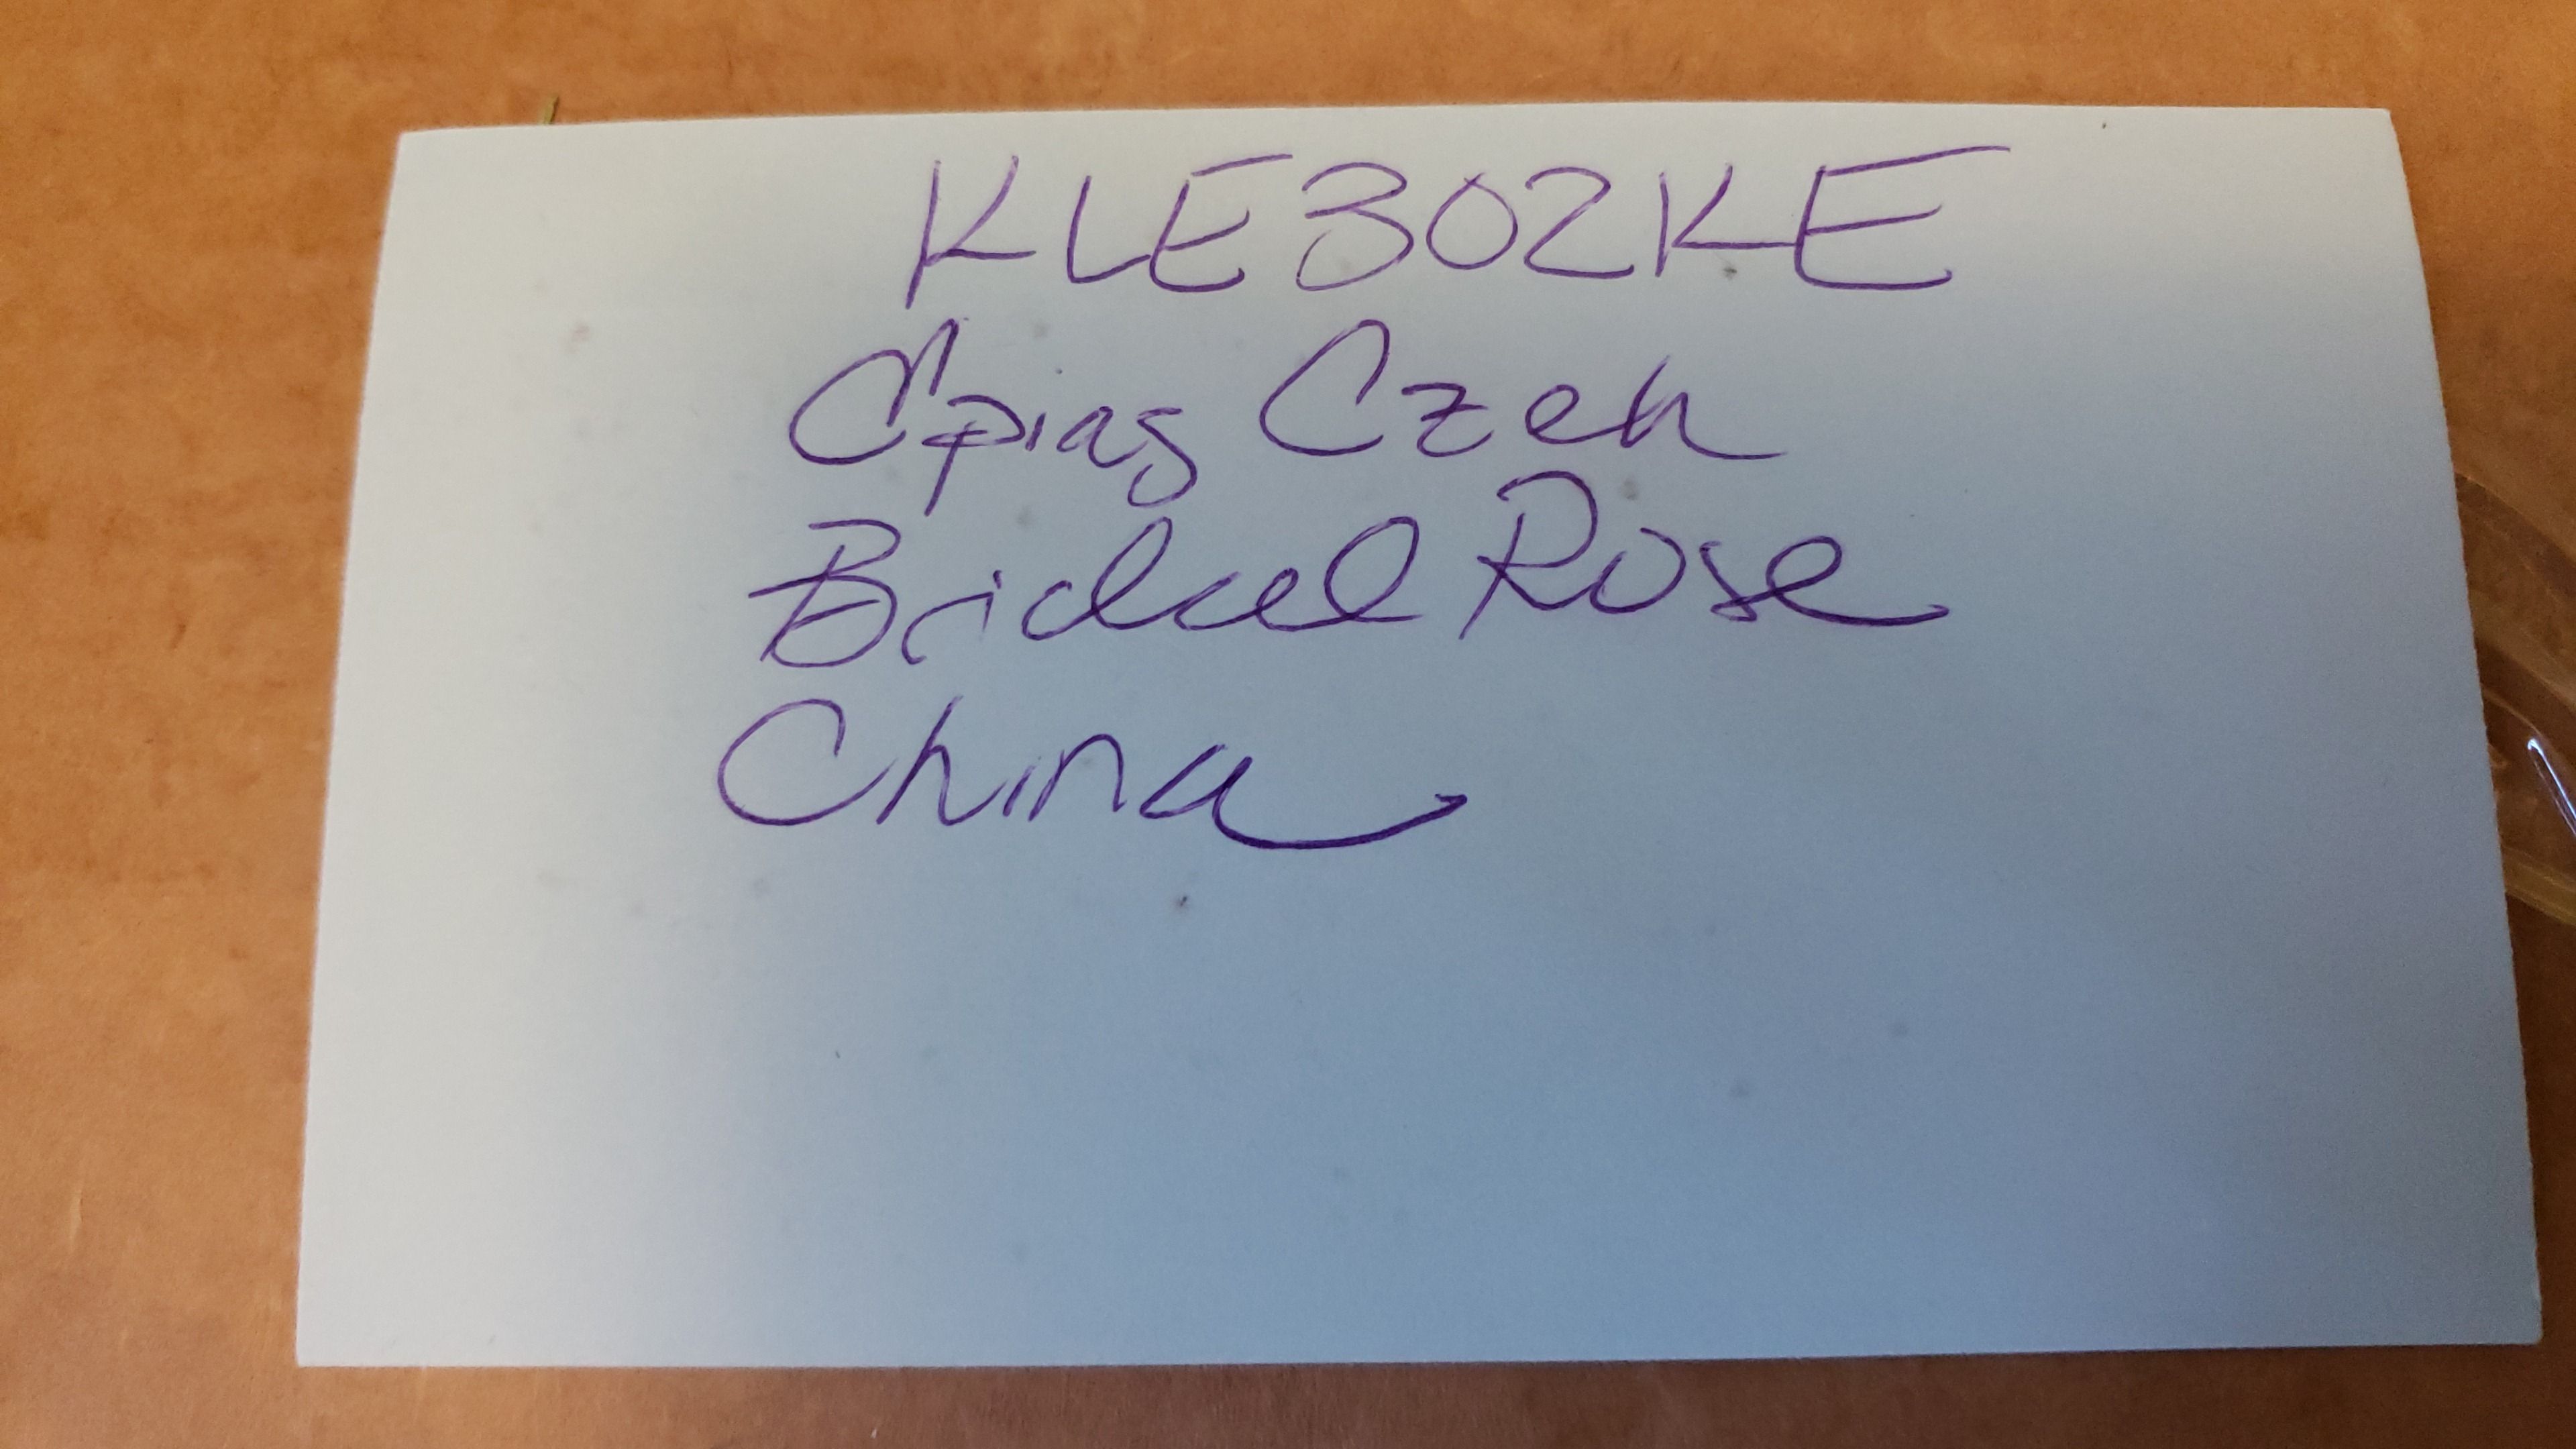 KLE302KE
Cpiag Czeh
Bridael Rose
China